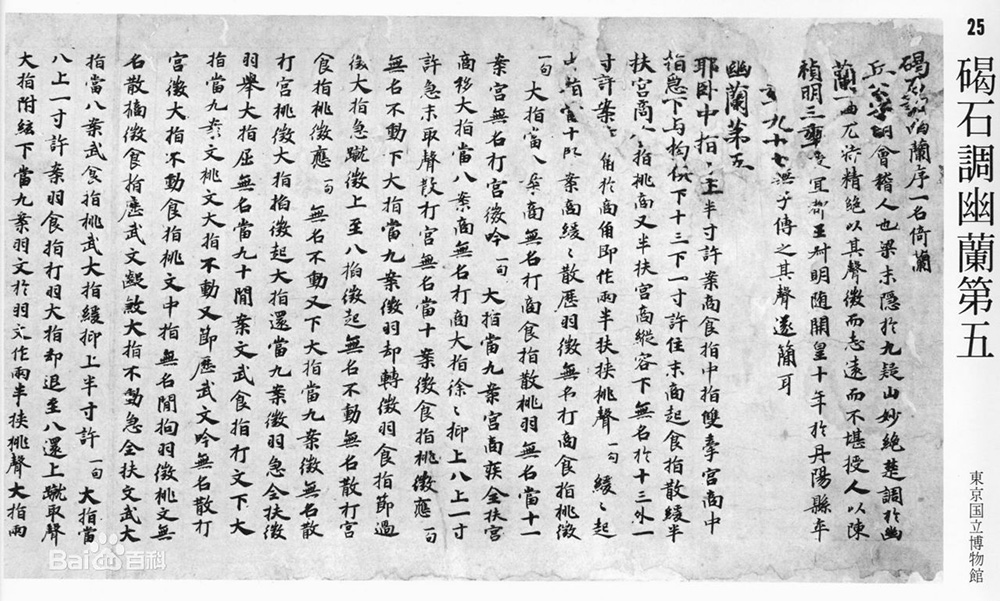 25
碣石調幽蘭第五
東京国立博物館
碣石調幽蘭序一名倚蘭
丘公字明會稽人也梁末隱於九疑山妙絕楚調於幽
蘭一曲尤特精絕以其聲微而志遠而不堪授人以陳
禎明三年授宜都王叔明随開皇十年於丹陽縣卒
年九十七無子傳之其聲遂簡耳
幽蘭第五
耶卧中指﹅半寸許案商食指中指雙牽宮商中
指急下与拘俱下十三下一寸許住末商起食指散緩半
扶宮商食指挑商又半扶宮商縱容下無名於十三外一
寸許案商角於商角即作兩半扶挾挑聲一句緩〻起
無名於十三外一寸許案商緩〻散歷羽徵無名打商食指挑徵
一句大指當八案商無名打商食指散挑羽無名當十一
案宮無名打宮徵吟一句大指當九案宮商疾全扶宮
商移大指當八案商無名打商大指徐〻抑上八上一寸
許急末取聲散打宮無名當十案徵食指挑徵應一句
無名不動下大指當九案徵羽却轉徵羽食指節過
徵大指急蹴徵上至八掐徵起無名不動無名散打宮
食指挑徵應一句無名不動又下大指當九案徵無名散
打宮挑徵大指掐徵起大指還當九案徵羽急全扶徵
羽舉大指屈無名當九十間案文武食指打文下大
指當九案文挑文大指不動又節歷武文吟無名散打
宮徵大指不動食指挑文中指無名間拘羽徵挑文無
名散摘徵食指歷武文齪敹大指不動急全扶文武大
指當八案武食指挑武大指緩抑上半寸許一句大指當
八上一寸許案羽食指打羽大指却退至八還上蹴取聲
大指附絃下當九案羽文於羽文作兩半扶挑聲大指兩
Bai百科